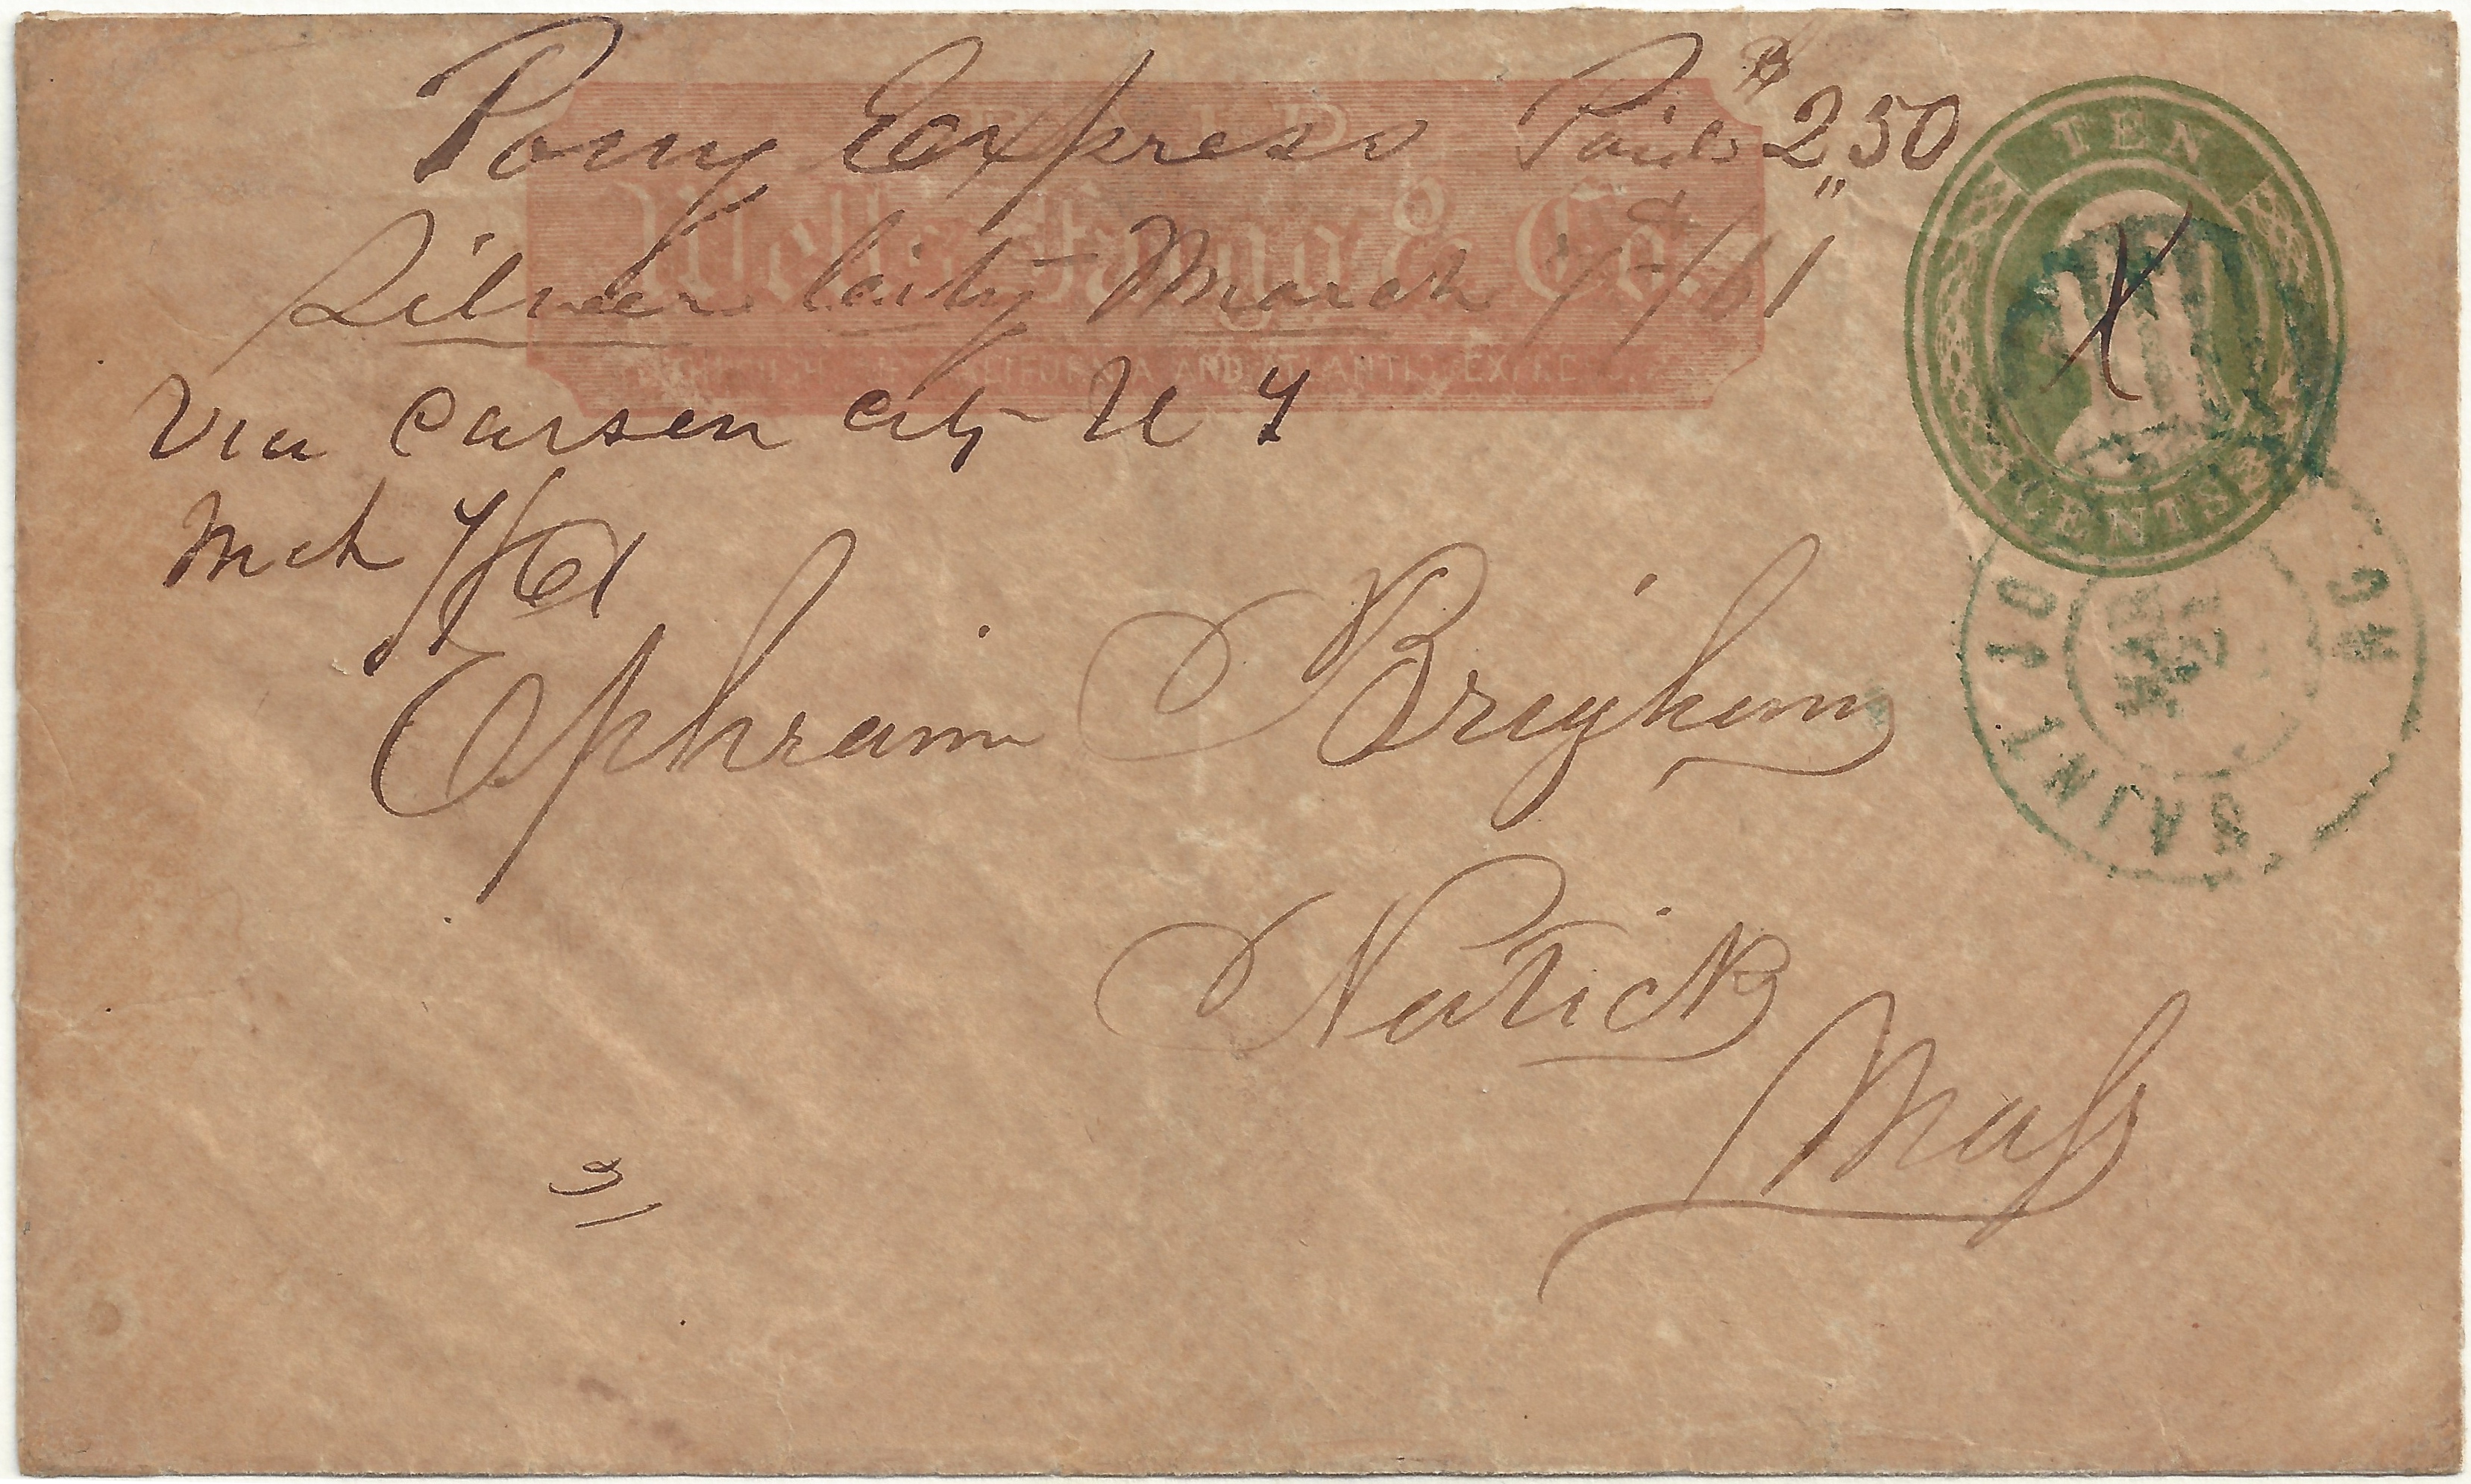 Pony Express Paid $2.50
PAID
Wells Fargo & Co.
Silver City March 7/61
CALIFORNIA AND ATLANTIC EXPRESS
Via Carson City U T
Mch 7/61
TEN
CENTS
Ephraim Brigham
Natick
Mass
SAINT JO
MAR
21
MO